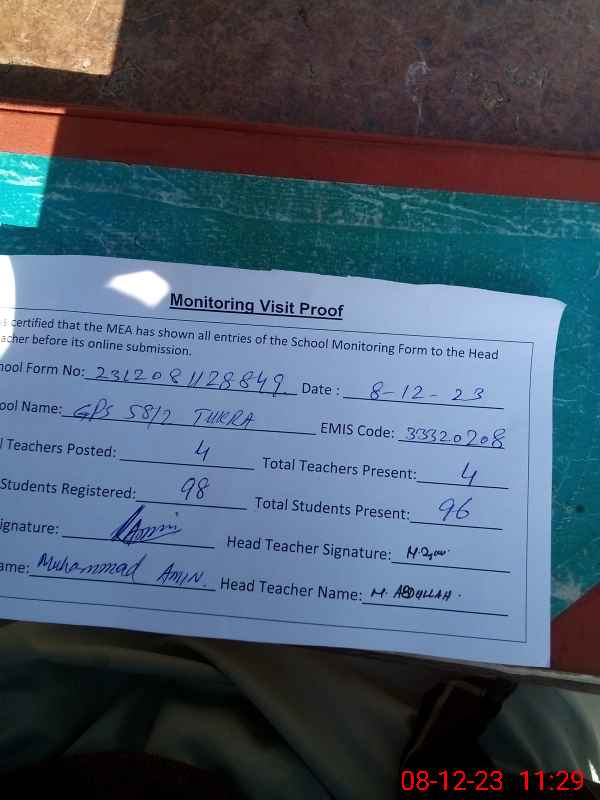 Monitoring Visit Proof
certified that the MEA has shown all entries of the School Monitoring Form to the Head
acher before its online submission.
hool Form No: 2312081128849 Date : 8-12-23
ool Name: GPS 58/2 TUKRA EMIS Code: 33320208
l Teachers Posted: 4 Total Teachers Present: 4
Students Registered: 98 Total Students Present: 96
ignature: Amin Head Teacher Signature:
ame: Muhammad AMIN. Head Teacher Name: M. ABDULLAH.
08-12-23 11:29